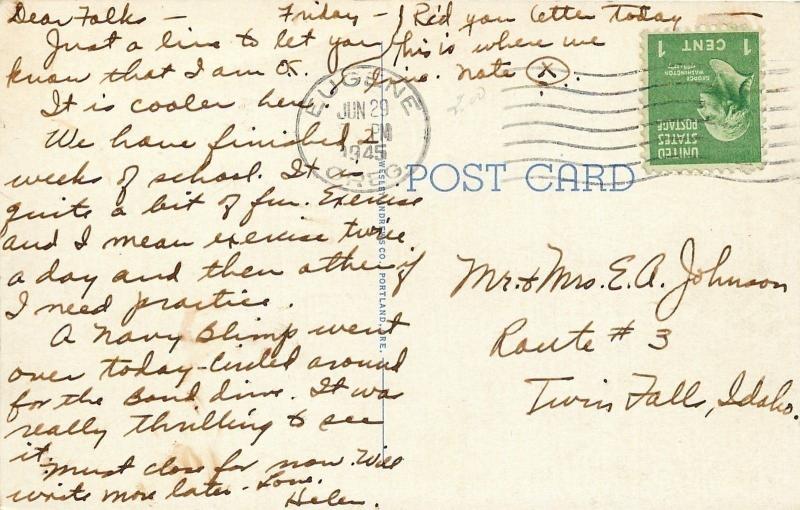 Dear Folks — Friday —
Just a line to let you
know that I am O.K.
It is cooler here.
We have finished 2
weeks of school. It is
quite a bit of fun. Exercise
and I mean exercise twice
a day and then other if
I need practice.
A Navy Blimp went
over today - circled around
for the Bond drive. It was
really thrilling to see
it.
Must close for now. Will
write more later - Love.
Helen.
Rc'd your letter today
This is where we
live. Note X
EUGENE
JUN 29
PM
1945
OREG.
1 CENT 1
GEORGE
WASHINGTON
UNITED
STATES
POSTAGE
POST CARD
WESLEY ANDREWS CO. PORTLAND, ORE.
Mr. & Mrs. E.A. Johnson
Route # 3
Twin Falls, Idaho.